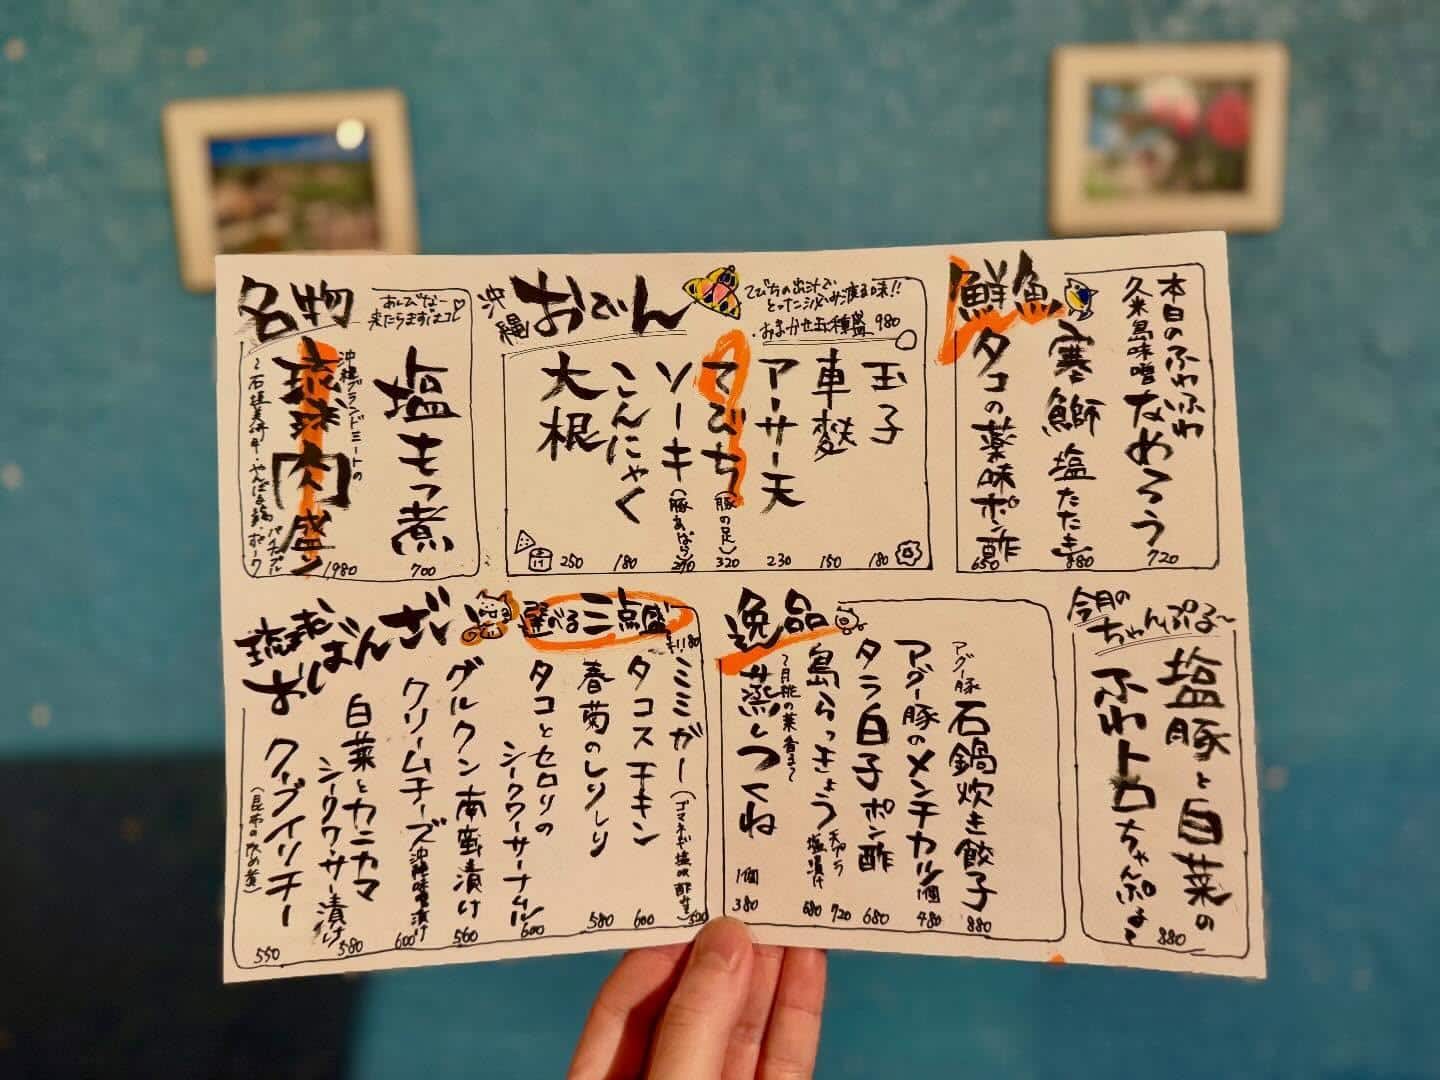 名物
あしびなー
来たらまずはコレ
塩もつ煮
700
沖縄グランドミートの
琉球肉盛り
1980
沖縄おでん
てびちの出汁で
おまかせ五種盛 980
玉子
180
車麩
150
アーサー天
230
てびち(豚の足)
320
ソーキ(豚あばら)
270
こんにゃく
180
大根
250
鮮魚
本日のふわふわ
久米島味噌なめろう
720
寒鰤塩たたき
880
タコの薬味ポン酢
650
琉球おばんざい
選べる三点盛
¥1180
ミミガー
520
タコスチキン
600
春菊のしりしり
580
タコとセロリの
シークワーサーナムル
600
グルクン南蛮漬け
560
クリームチーズ沖縄味噌漬け
600
白菜とカニカマ
シークワーサー漬け
580
クーブイリチー
(昆布の炒め煮)
550
逸品
アグー豚 石鍋炊き餃子
880
アグー豚のメンチカツ
1個
480
タラ白子ポン酢
680
島らっきょう
天ぷら 720
塩漬け 680
〜月桃の葉香る〜
蒸しつくね
1個
380
今月の
ちゃんぷる〜
塩豚と白菜の
ふわトロちゃんぷるー
880